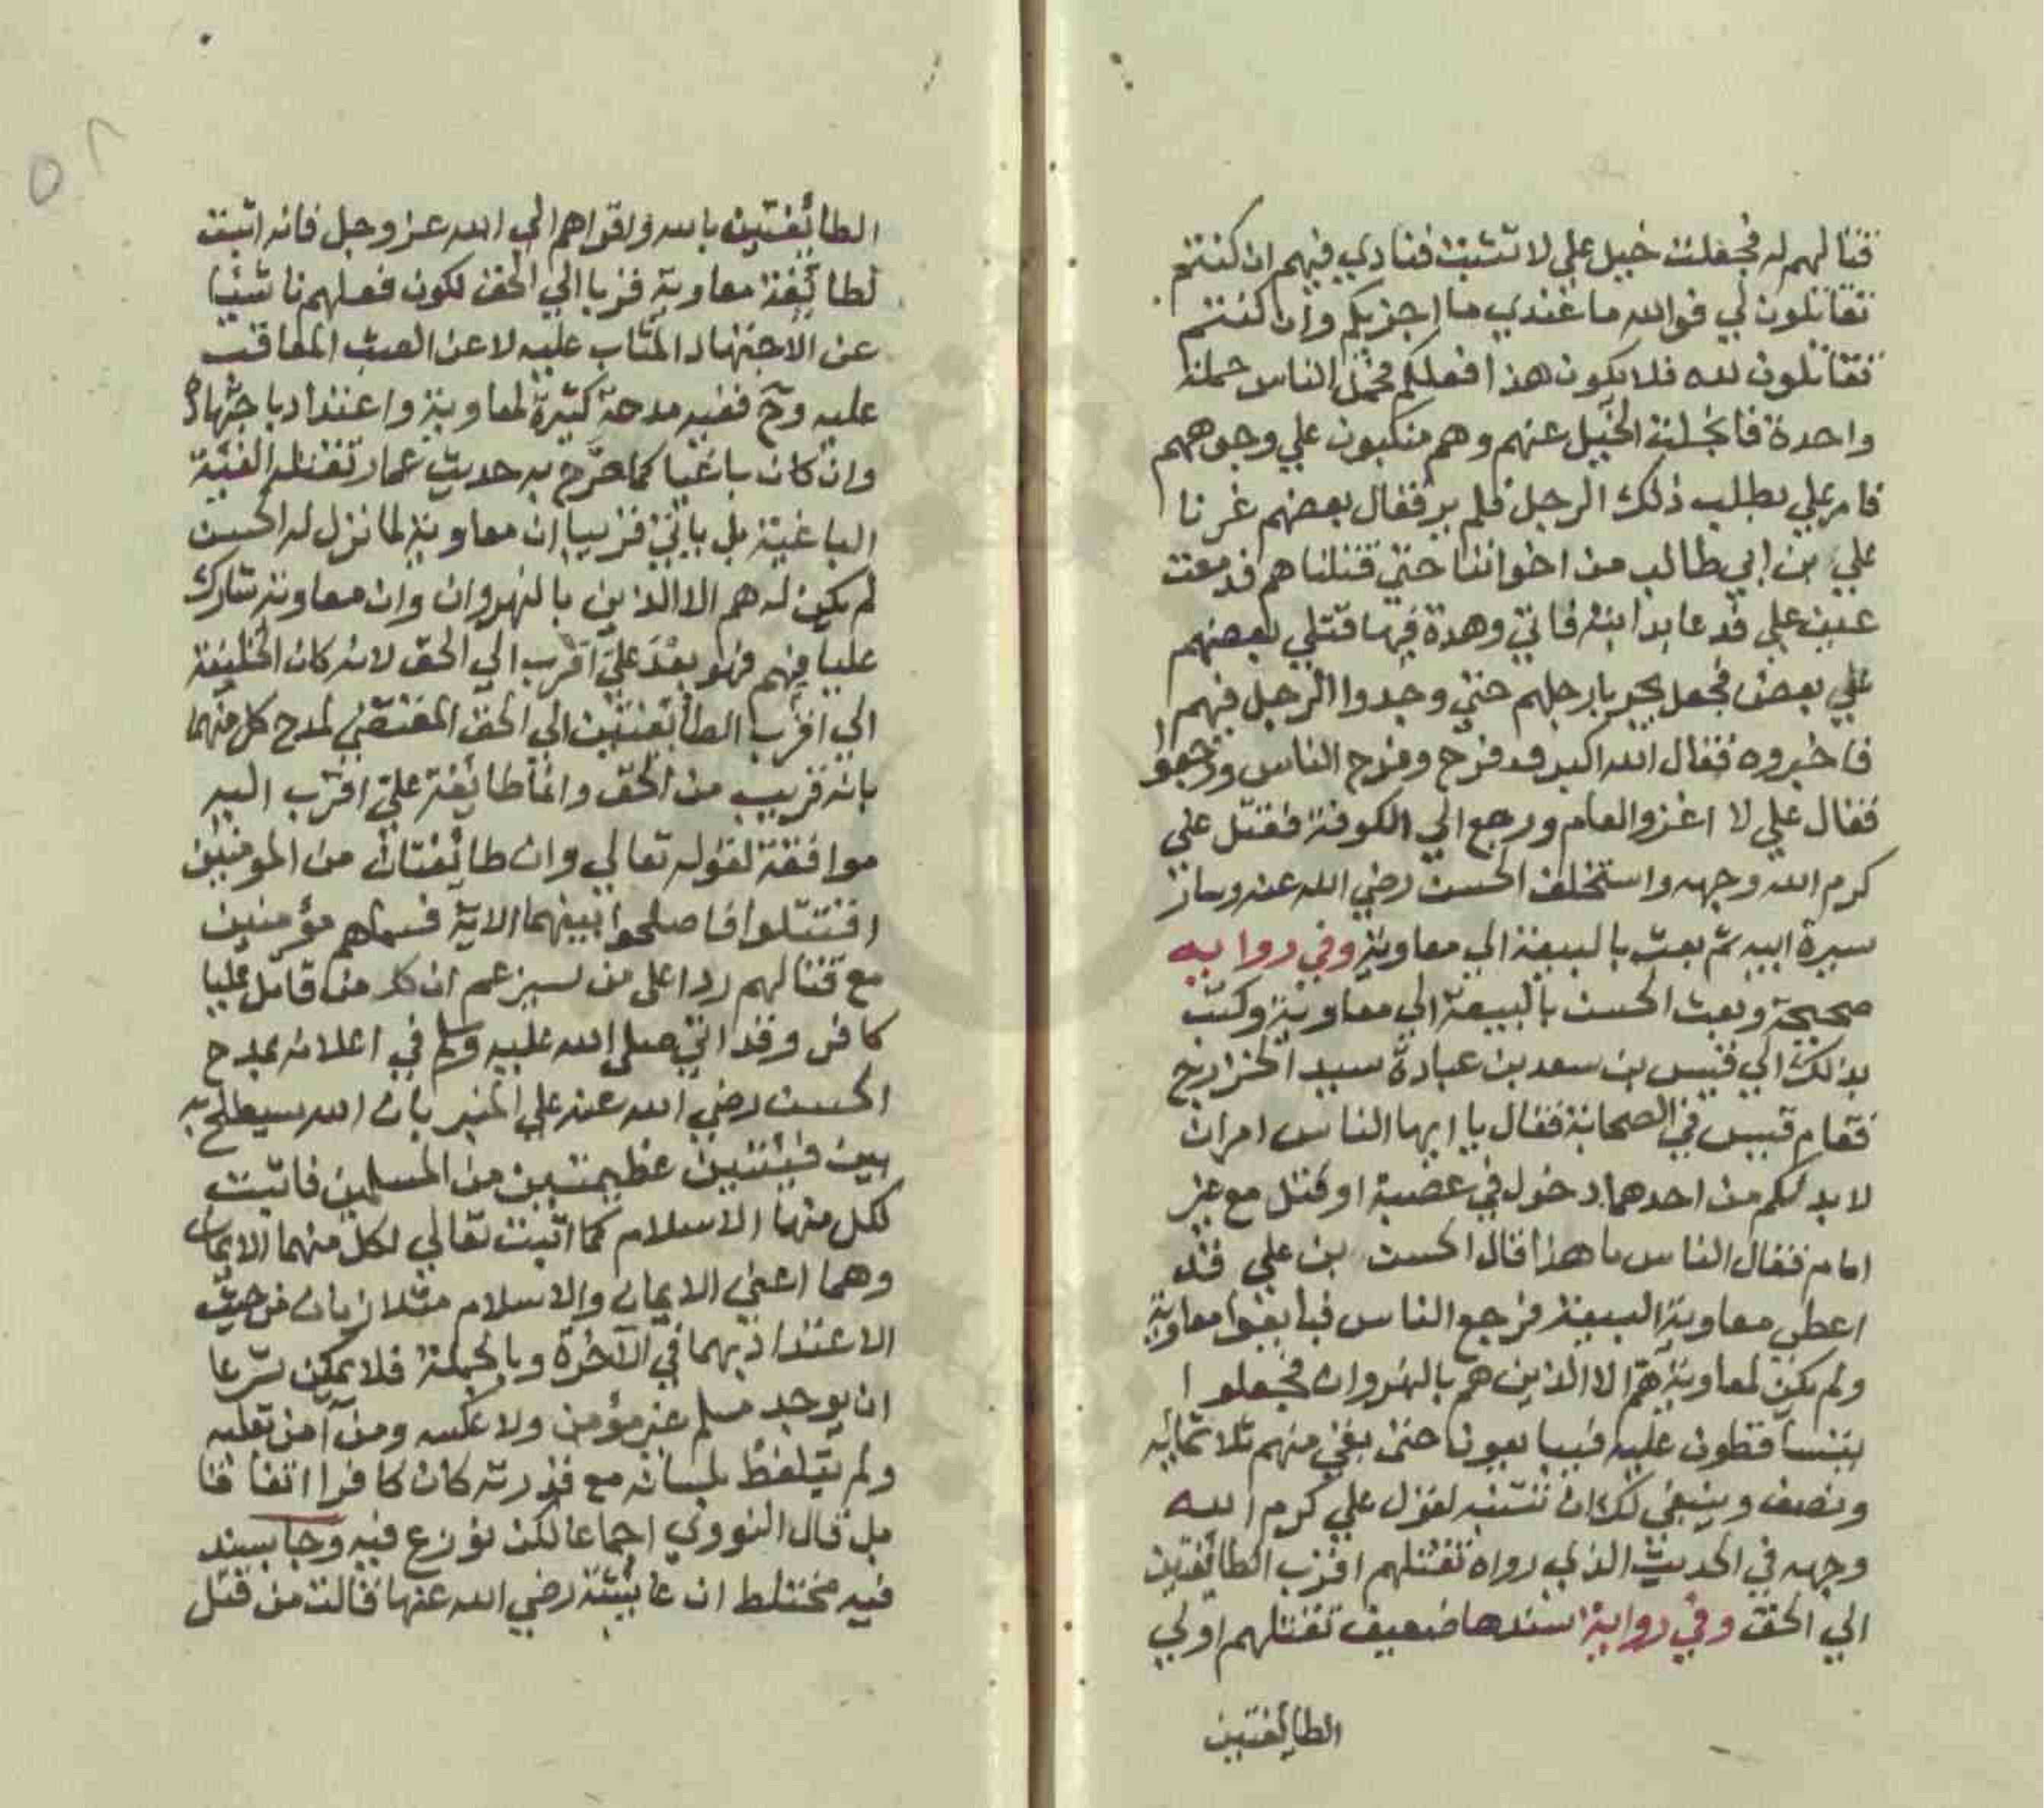 قتالهم له فجعلت خيل علي لا تثبت فنادي فيهم ان كنتم
تقاتلون لي فوالله ما عندي ما اجزيكم وان كنتم
تقاتلون لله فلا يكون هذا فعلكم فحمل الناس حملة
واحدة فانجلت الخيل عنهم وهم منكبون علي وجوههم
فامر علي بطلب ذلك الرجل فلم ير فقال بعضهم غرنا
علي بن ابي طالب من اخواننا حتي قتلناهم فدمعت
عين علي فدعا بدابته فاتي وهدة فيها قتلي بعضهم
علي بعض فجعل يجر بارجلهم حتي وجدوا الرجل فيهم
فاخبروه فقال الله اكبر وفرح وفرح الناس ورجعوا
فقال علي لا اغزو العام ورجع الي الكوفة فقتل علي
كرم الله وجهه واستخلف الحسن رضي الله عنه وسار
سيرة ابيه ثم بعث بالبيعة الي معاوية وفي رواية
صحيحة وبعث الحسن بالبيعة الي معاوية وكتب
بذلك الي قيس بن سعد بن عبادة سيد الخزارج
فقام قيس في الصحابة فقال يا ايها الناس امران
لا بد لكم من احدهما دخول في غضبة او قتل مع غير
امام فقال الناس ما هذا قال الحسن بن علي قد
اعطي معاوية البيعة فرجع الناس فبايعوا معاوية
ولم يكن لمعاوية هم الا الذين هم بالنهروان فجعلوا
يتساقطون عليه فيبايعون حتي بقي منهم ثلاثمائه
ونصف وينبغي لك ان تتنبه لقول علي كرم الله
وجهه في الحديث الذي رواه تقتلهم اقرب الطائفتين
الي الحق وفي رواية سندها ضعيف تقتلهم اولي
الطائفتين
الطائفتين بالله واقراهم الي الله عز وجل فانه اثبت
لطائفة معاوية قربا الي الحق لكون فعلهم ناشئا
عن الاجتهاد المثاب عليه لا عن العبث المعاقب
عليه وح ففيه مدحة كثيرة لمعاوية واعتداد باجتهاده
وان كان باغيا كما صرح به حديث عمار تقتله الفئية
الباغية بل ياتي قريبا ان معاوية لما نزل له الحسن
لم يكن له هم الا الذين بالنهروان وان معاوية شارك
عليا فيهم فهو بعد علي اقرب الي الحق لانه كان الخليفة
الي اقرب الطائفتين الي الحق المقتضي لمدح كل منهما
بانه قريب من الحق وانما طائفة علي اقرب اليه
موافقة لقوله تعالي وان طائفتان من المومنين
اقتتلوا فاصلحوا بينهما الاية فسماهم مؤمنين
مع قتالهم ردا على من يزعم ان كل من قاتل عليا
كافر وقد اتي صلى الله عليه وسلم في اعلانه بمدح
الحسن رضي الله عنه علي المنبر بان الله سيصلح به
بين فئتين عظيمتين من المسلمين فاثبت
لكل منهما الاسلام كما اثبت تعالي لكل منهما الايمان
وهما اعني الايمان والاسلام متلازمان من حيث
الاعتداد بهما في الآخرة وبالجملة فلا يمكن شرعا
ان يوجد مسلم غير مؤمن ولا عكسه ومن آمن بقلبه
ولم يتلفظ بلسانه مع قدرته كان كافرا اتفاقا
بل قال النووي اجماعا لكن نوزع فيه وجا بسند
فيه مختلط ان عايشة رضي الله عنها قالت من قتل